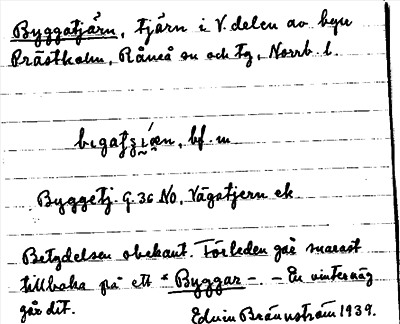 Byggatjärn, tjärn i V. delen av byn
Prästholm, Råneå sn och tg, Norrb. l.
bf. m
Byggetj. G. 36 NO, Vägatjern ek.
Betydelsen obekant. Förleden går snarast
tillbaka på ett *Byggar -. - En vinterväg
går dit.
Edvin Brännström 1939.